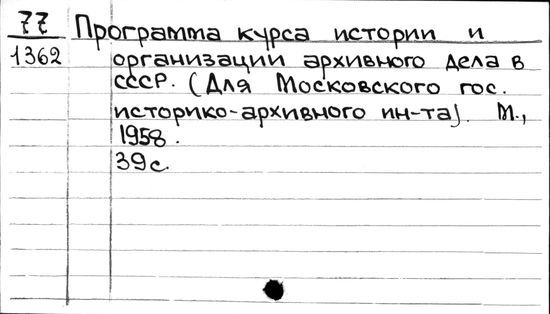 77 Программа курса истории и
1362 организации архивного дела в
СССР. (Для Московского гос.
историко-архивного ин-та). М.,
1958.
39с.